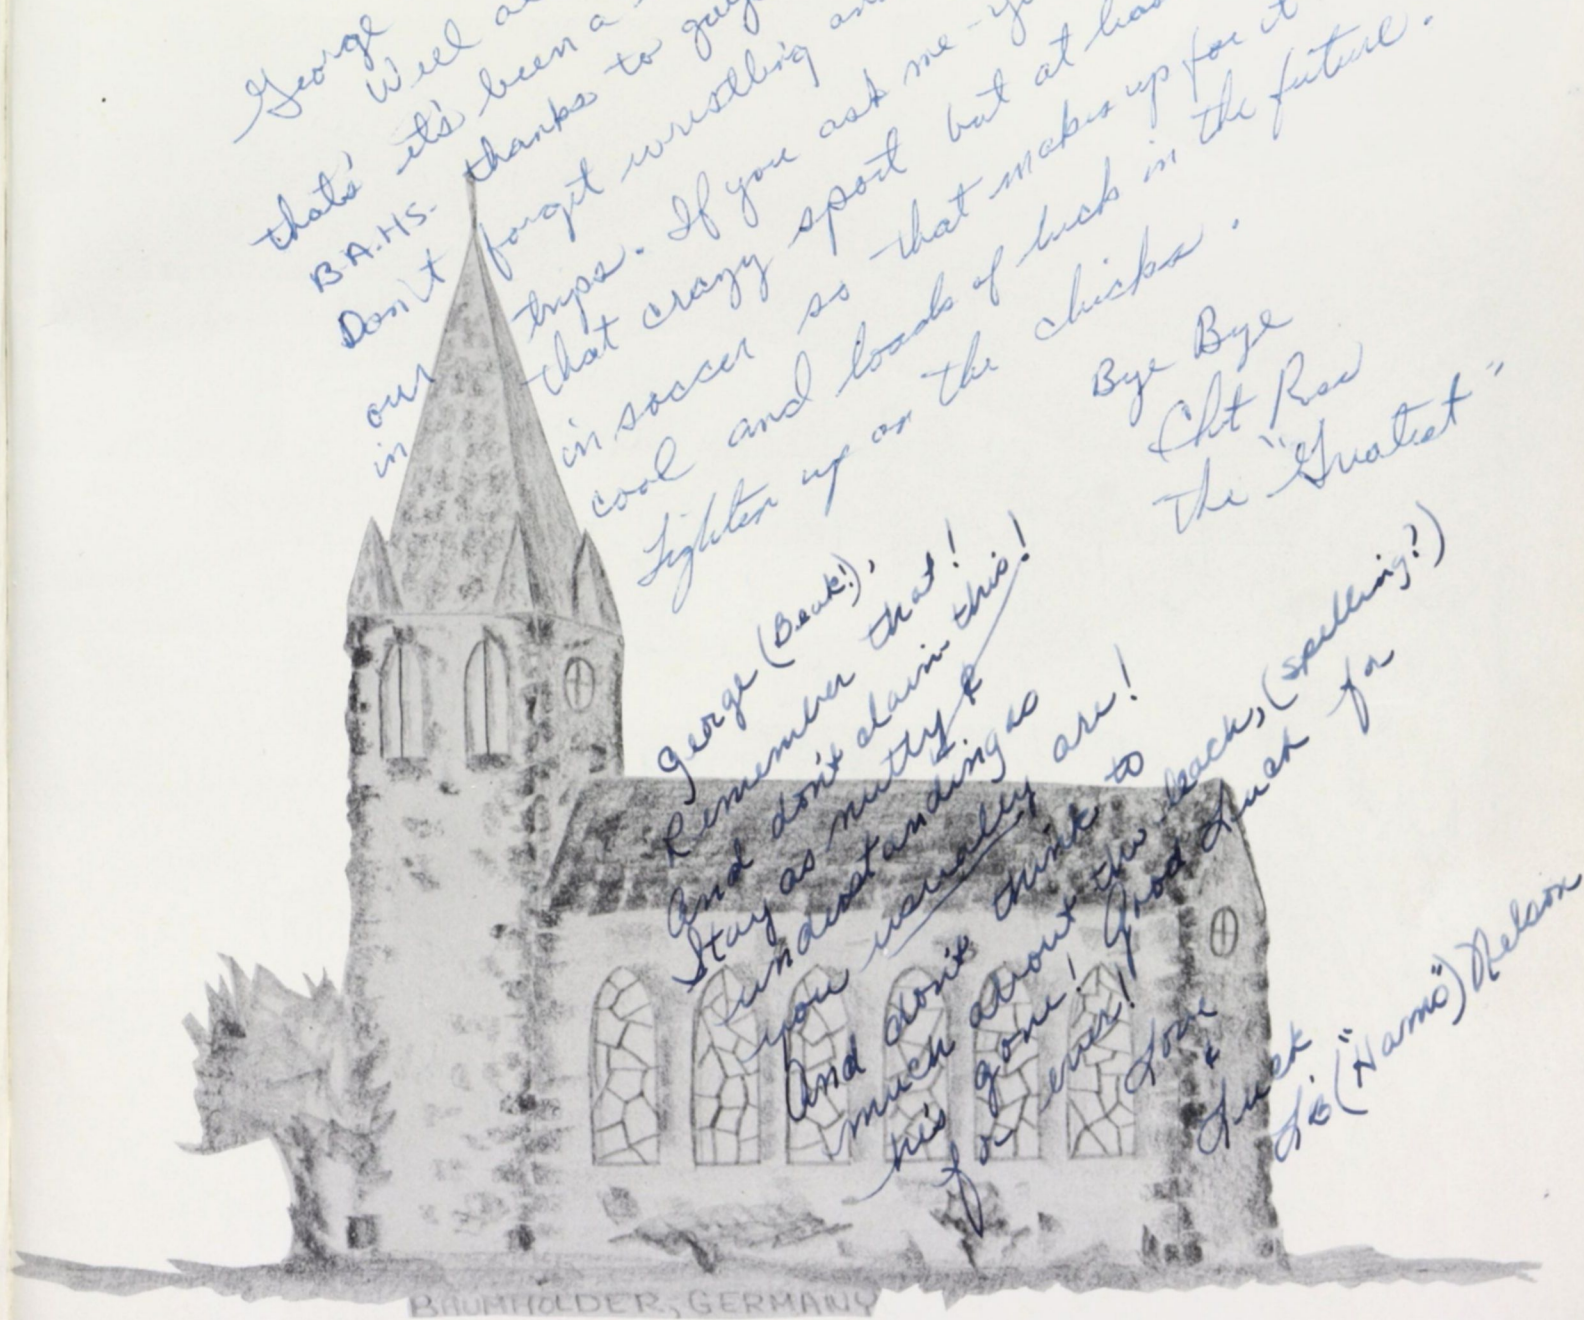 George
Well a
that's it's been a
B.A.H.S. thanks to guy
Don't forget wrestling an
our trips. If you ask me - y
in that crazy sport but at leas
in soccer so that makes up for it
cool and loads of luck in the future.
Lighten up on the chicks.
Bye Bye
Chet
the "Greatest"
George (Beak!),
Remember that!
And don't claim this!
Stay as nutty &
understanding as
you usually are!
And don't think to
much about the leach, (spelling?)
his gone! Good Luck for
for ever!
Love
&
Luck
Lib ("Hamo") Nelson
BAUMHOLDER, GERMANY